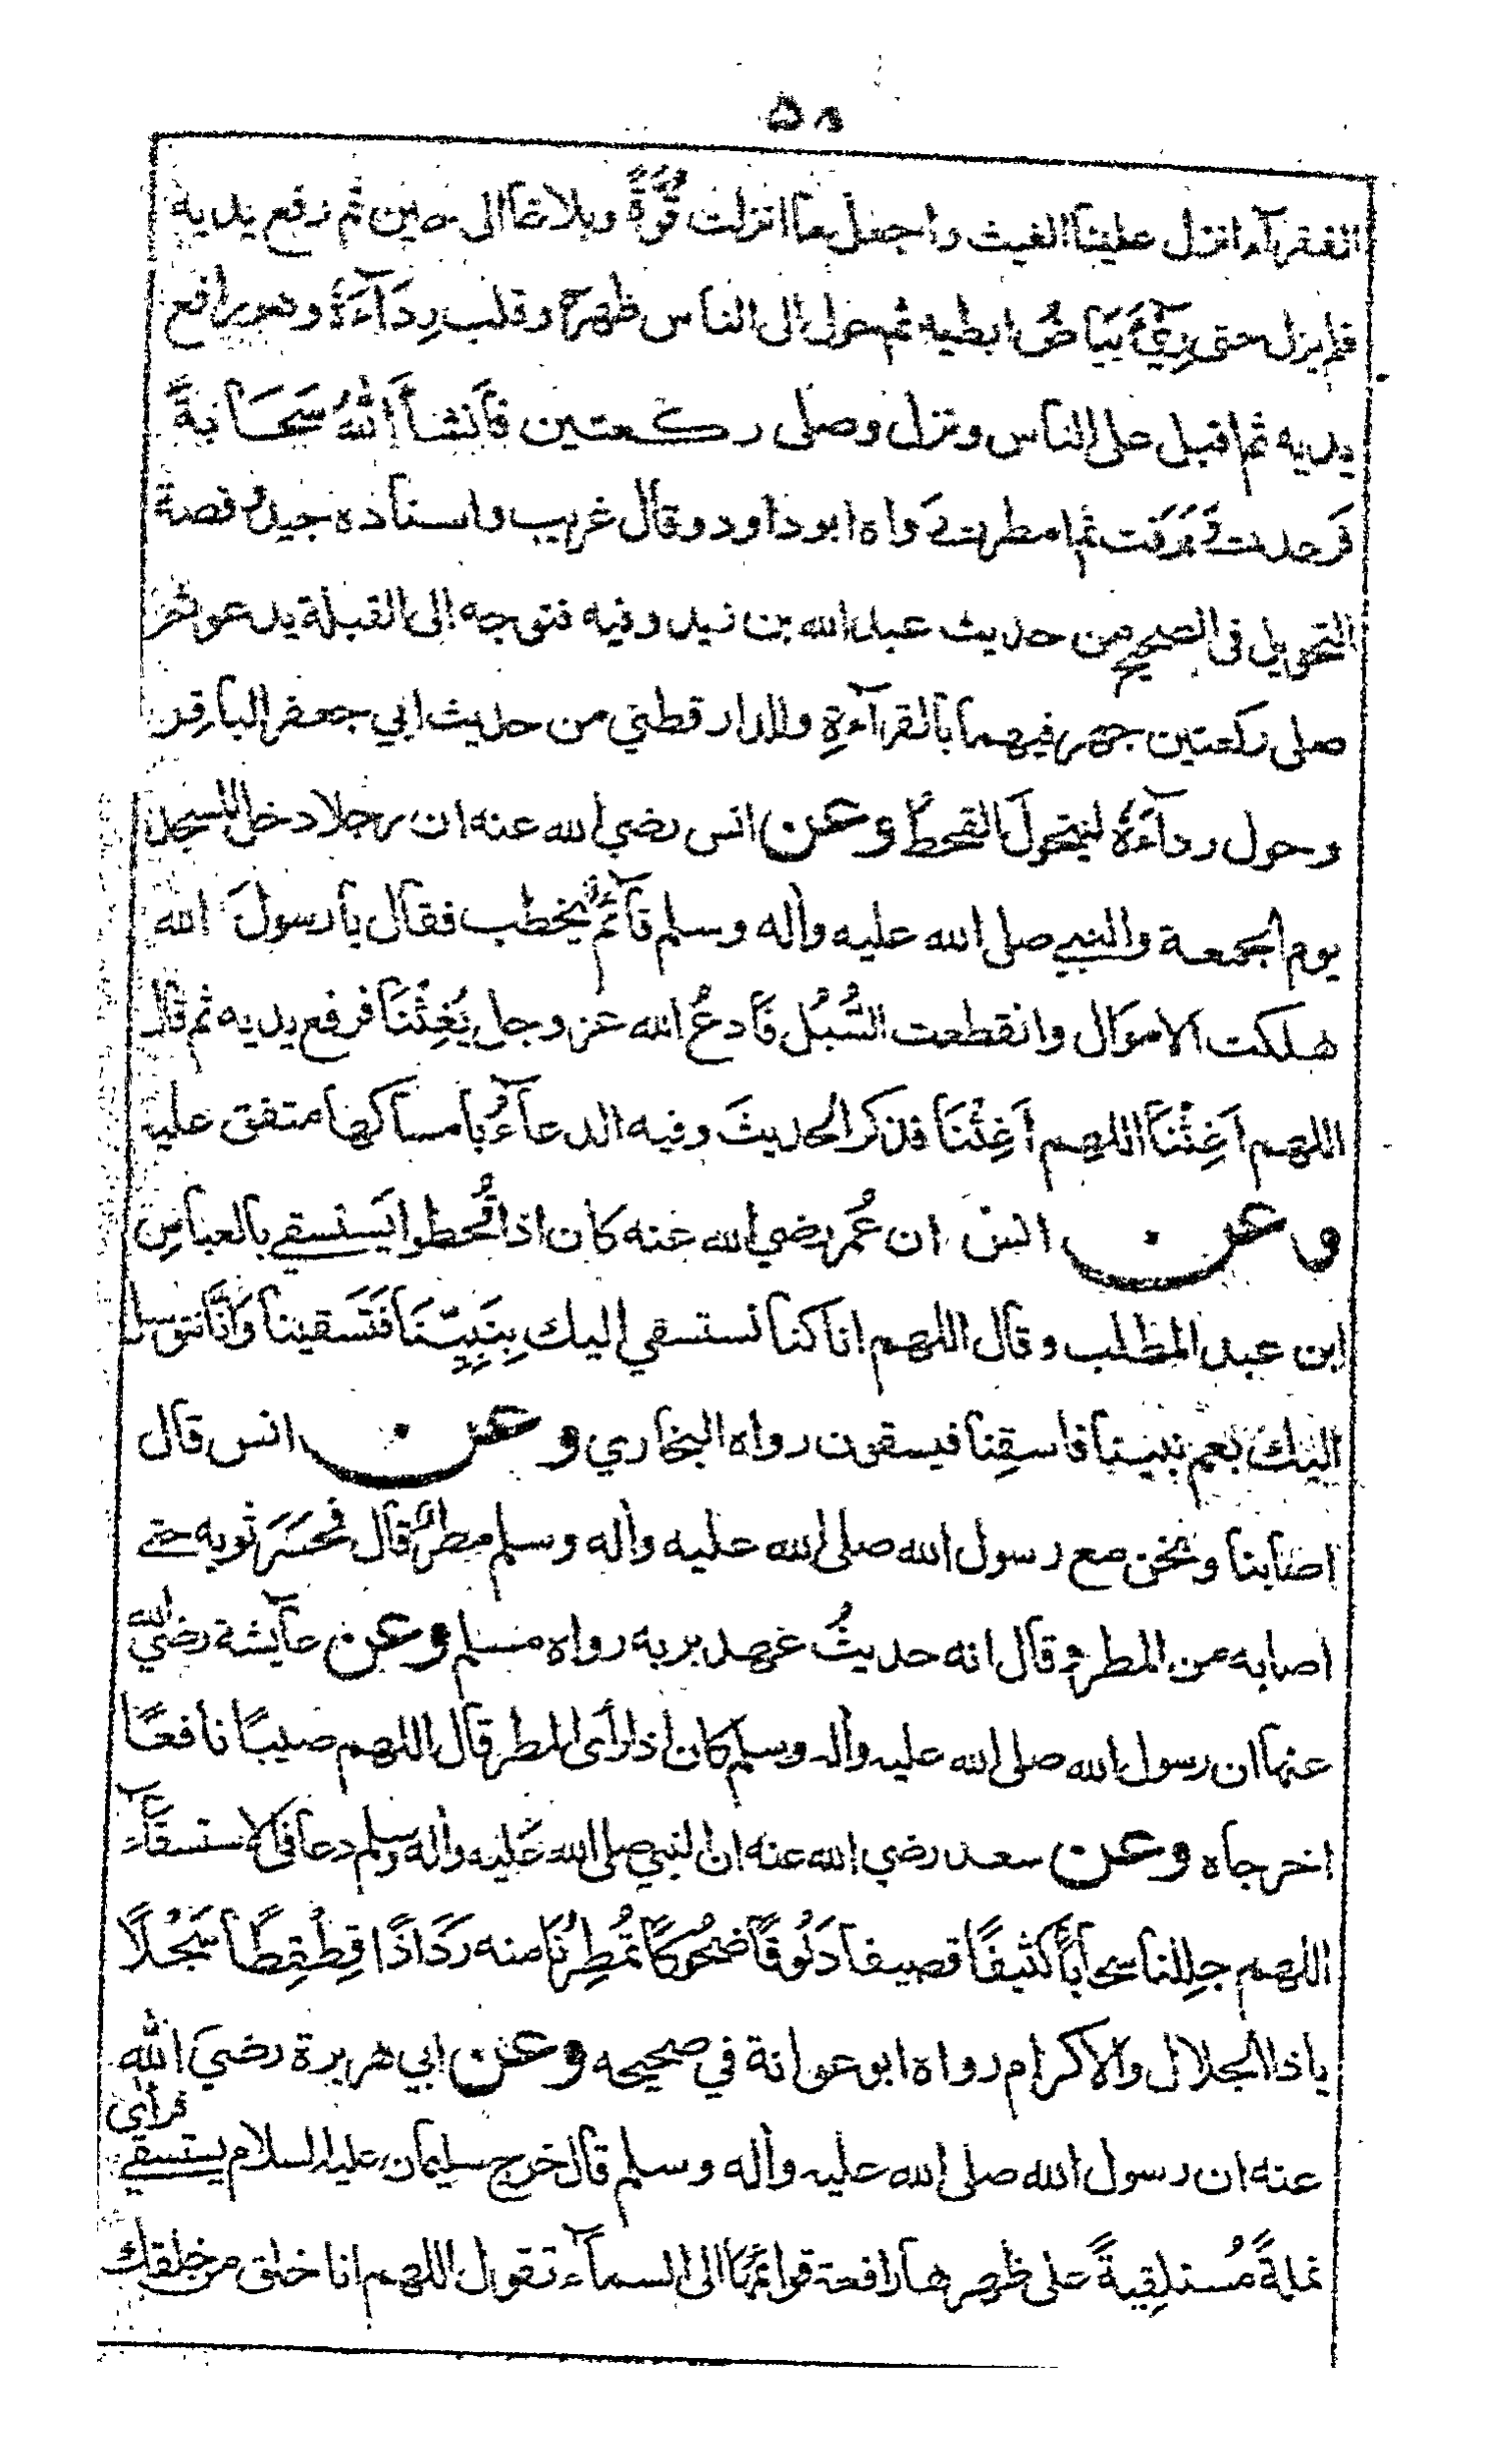 ٥٨
الفقرآء انزل علينا الغيث واجعل ما انزلت قُوَّةً وبلاغا الى حين ثم رفع يديه
فلم يزل حتى رِئَيَ بَيَاضُ ابطيه ثم حول الى الناس ظهره وقلب رِدَآءَهٗ وهو رافع
يديه ثم اقبل على الناس ونزل وصلى ركعتين فأنشأَ اللهُ سَحَابَةً
فَرعدت وَبَرَقت ثم امطرت رواه ابو داود وقال غريب واسناده جيد وقصة
التحويل فى الصحيح من حديث عبد الله بن زيد وفيه فتوجه الى القبلة يدعو ثم
صلى ركعتين جهر فيهما بالقرآءةِ وللدارقطني من حديث ابي جعفر الباقر
وحول ردآءَهٗ ليتحولَ القحطُ وعن انس رضي الله عنه ان رجلا دخل المسجد
يوم الجمعة والنبي صلى الله عليه واٰله وسلم قآئمٌ يخطب فقال يا رسولَ الله
هلكت الاموَال وانقطعت السُّبُل فادعُ الله عز وجل يُغِثْنَا فرفع يديه ثم قال
اللهم اَغِثْنَا اللهم اَغِثْنَا فذكر الحديثَ وفيه الدعآءُ بامساكها متفق عليه
وعن انس ان عُمر رضي الله عنه كان اذا قُحطوا يَستسقي بالعباسِ
ابن عبد المطلب وقال اللهم انا كنا نستسقي اليك بِنَبِيِّنَا فَتَسقينا وَانَّا نتوسل
اليك بعم نبينا فاسقِنا فيسقون رواه البخاري وعن انس قال
اصابنا ونحن مع رسول الله صلى الله عليه واٰله وسلم مطرٌ قال فحَسَرَ ثوبه حتى
اصابه من المطر وقال انه حديثُ عهد بربه رواه مسلم وعن عآيشة رضي الله
عنها ان رسول الله صلى الله عليه واٰله وسلم كان اذا رأى المطر قال اللهم صيبًا نافعًا
اخرجاه وعن سعد رضي الله عنه ان النبي صلى الله عَليه واٰله وسلم دعا فى الاستسقآء
اللهم جلِلنا سحابًا كثيفًا قصيفا دَلُوقًا ضحُوكًا تُمطِرُنَا منه رَذَاذًا قِطْقِطًا سَجْلًا
ياذا الجلال والاكرام رواه ابو عوانة في صحيحه وعن ابي هريرة رضيَ الله
عنه ان رسول الله صلى الله عليه واٰله وسلم قال خرج سليمان عليه السلام يستسقي فرأى
نملةً مُستلقِيةً على ظهرها رافعة قوائمها الى السمآء تقول اللهم انا خلق من خلقك